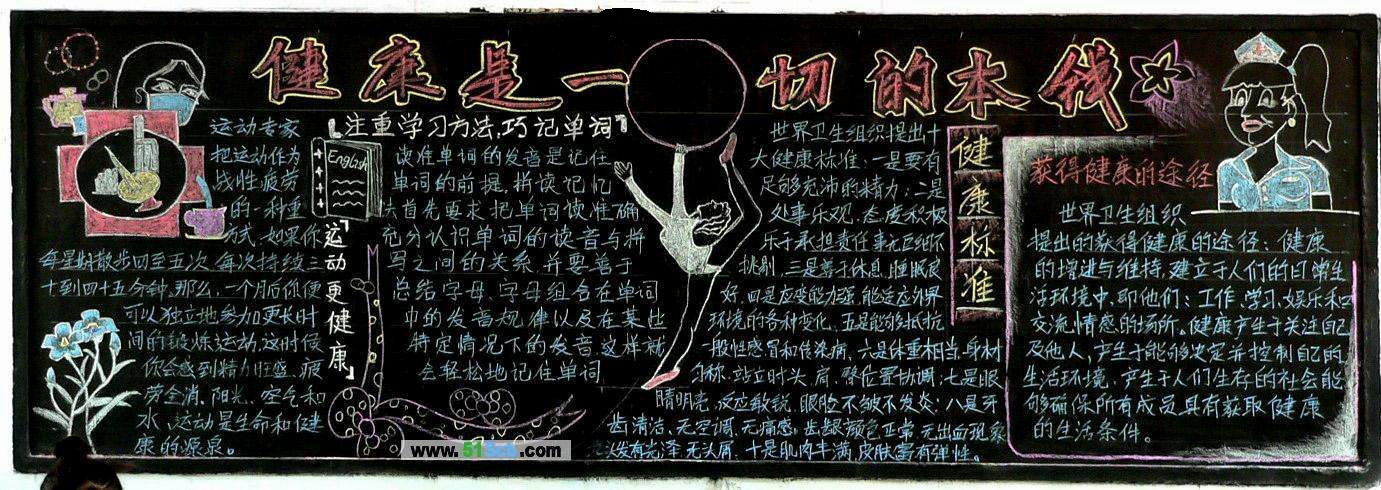 健康是一切的本钱
运动专家
把运动作为
战性疲劳
的一种重
方式.如果你
每星期散步四至五次.每次持续三
十到四十五分钟.那么,一个月后你便
可以独立地参加更长时
间的锻炼运动.这时候
你会感到精力旺盛.疲
劳全消.阳光、空气和
水、运动是生命和健
康的源泉。
『运动更健康』
English
『注重学习方法,巧记单词』
读准单词的发音是记住
单词的前提,拼读记忆
法首先要求把单词读准确
充分认识单词的读音与拼
写之间的关系.并要善于
总结字母、字母组合在单词
中的发音规律以及在某些
特定情况下的发音.这样就
会轻松地记住单词
世界卫生组织提出十
大健康标准:一是要有
足够充沛的精力;二是
处事乐观,态度积极
乐于承担责任事无巨细不
挑剔,三是善于休息,睡眠良
好,四是应变能力强,能适应外界
环境的各种变化,五是能够抵抗
一般性感冒和传染病,六是体重相当,身材
匀称,站立时头、肩、臀位置协调;七是眼
睛明亮,反应敏锐,眼睑不皱不发炎;八是牙
齿清洁、无空调、无痛感,齿龈颜色正常,无出血现象
头发有光泽无头屑,十是肌肉丰满,皮肤富有弹性。
健康标准
获得健康的途径
世界卫生组织
提出的获得健康的途径:健康
的增进与维持,建立于人们的日常生
活环境中,即他们:工作、学习、娱乐和
交流情感的场所。健康产生于关注自己
及他人,产生于能够决定并控制自己的
生活环境,产生于人们生存的社会能
够确保所有成员具有获取健康
的生活条件。